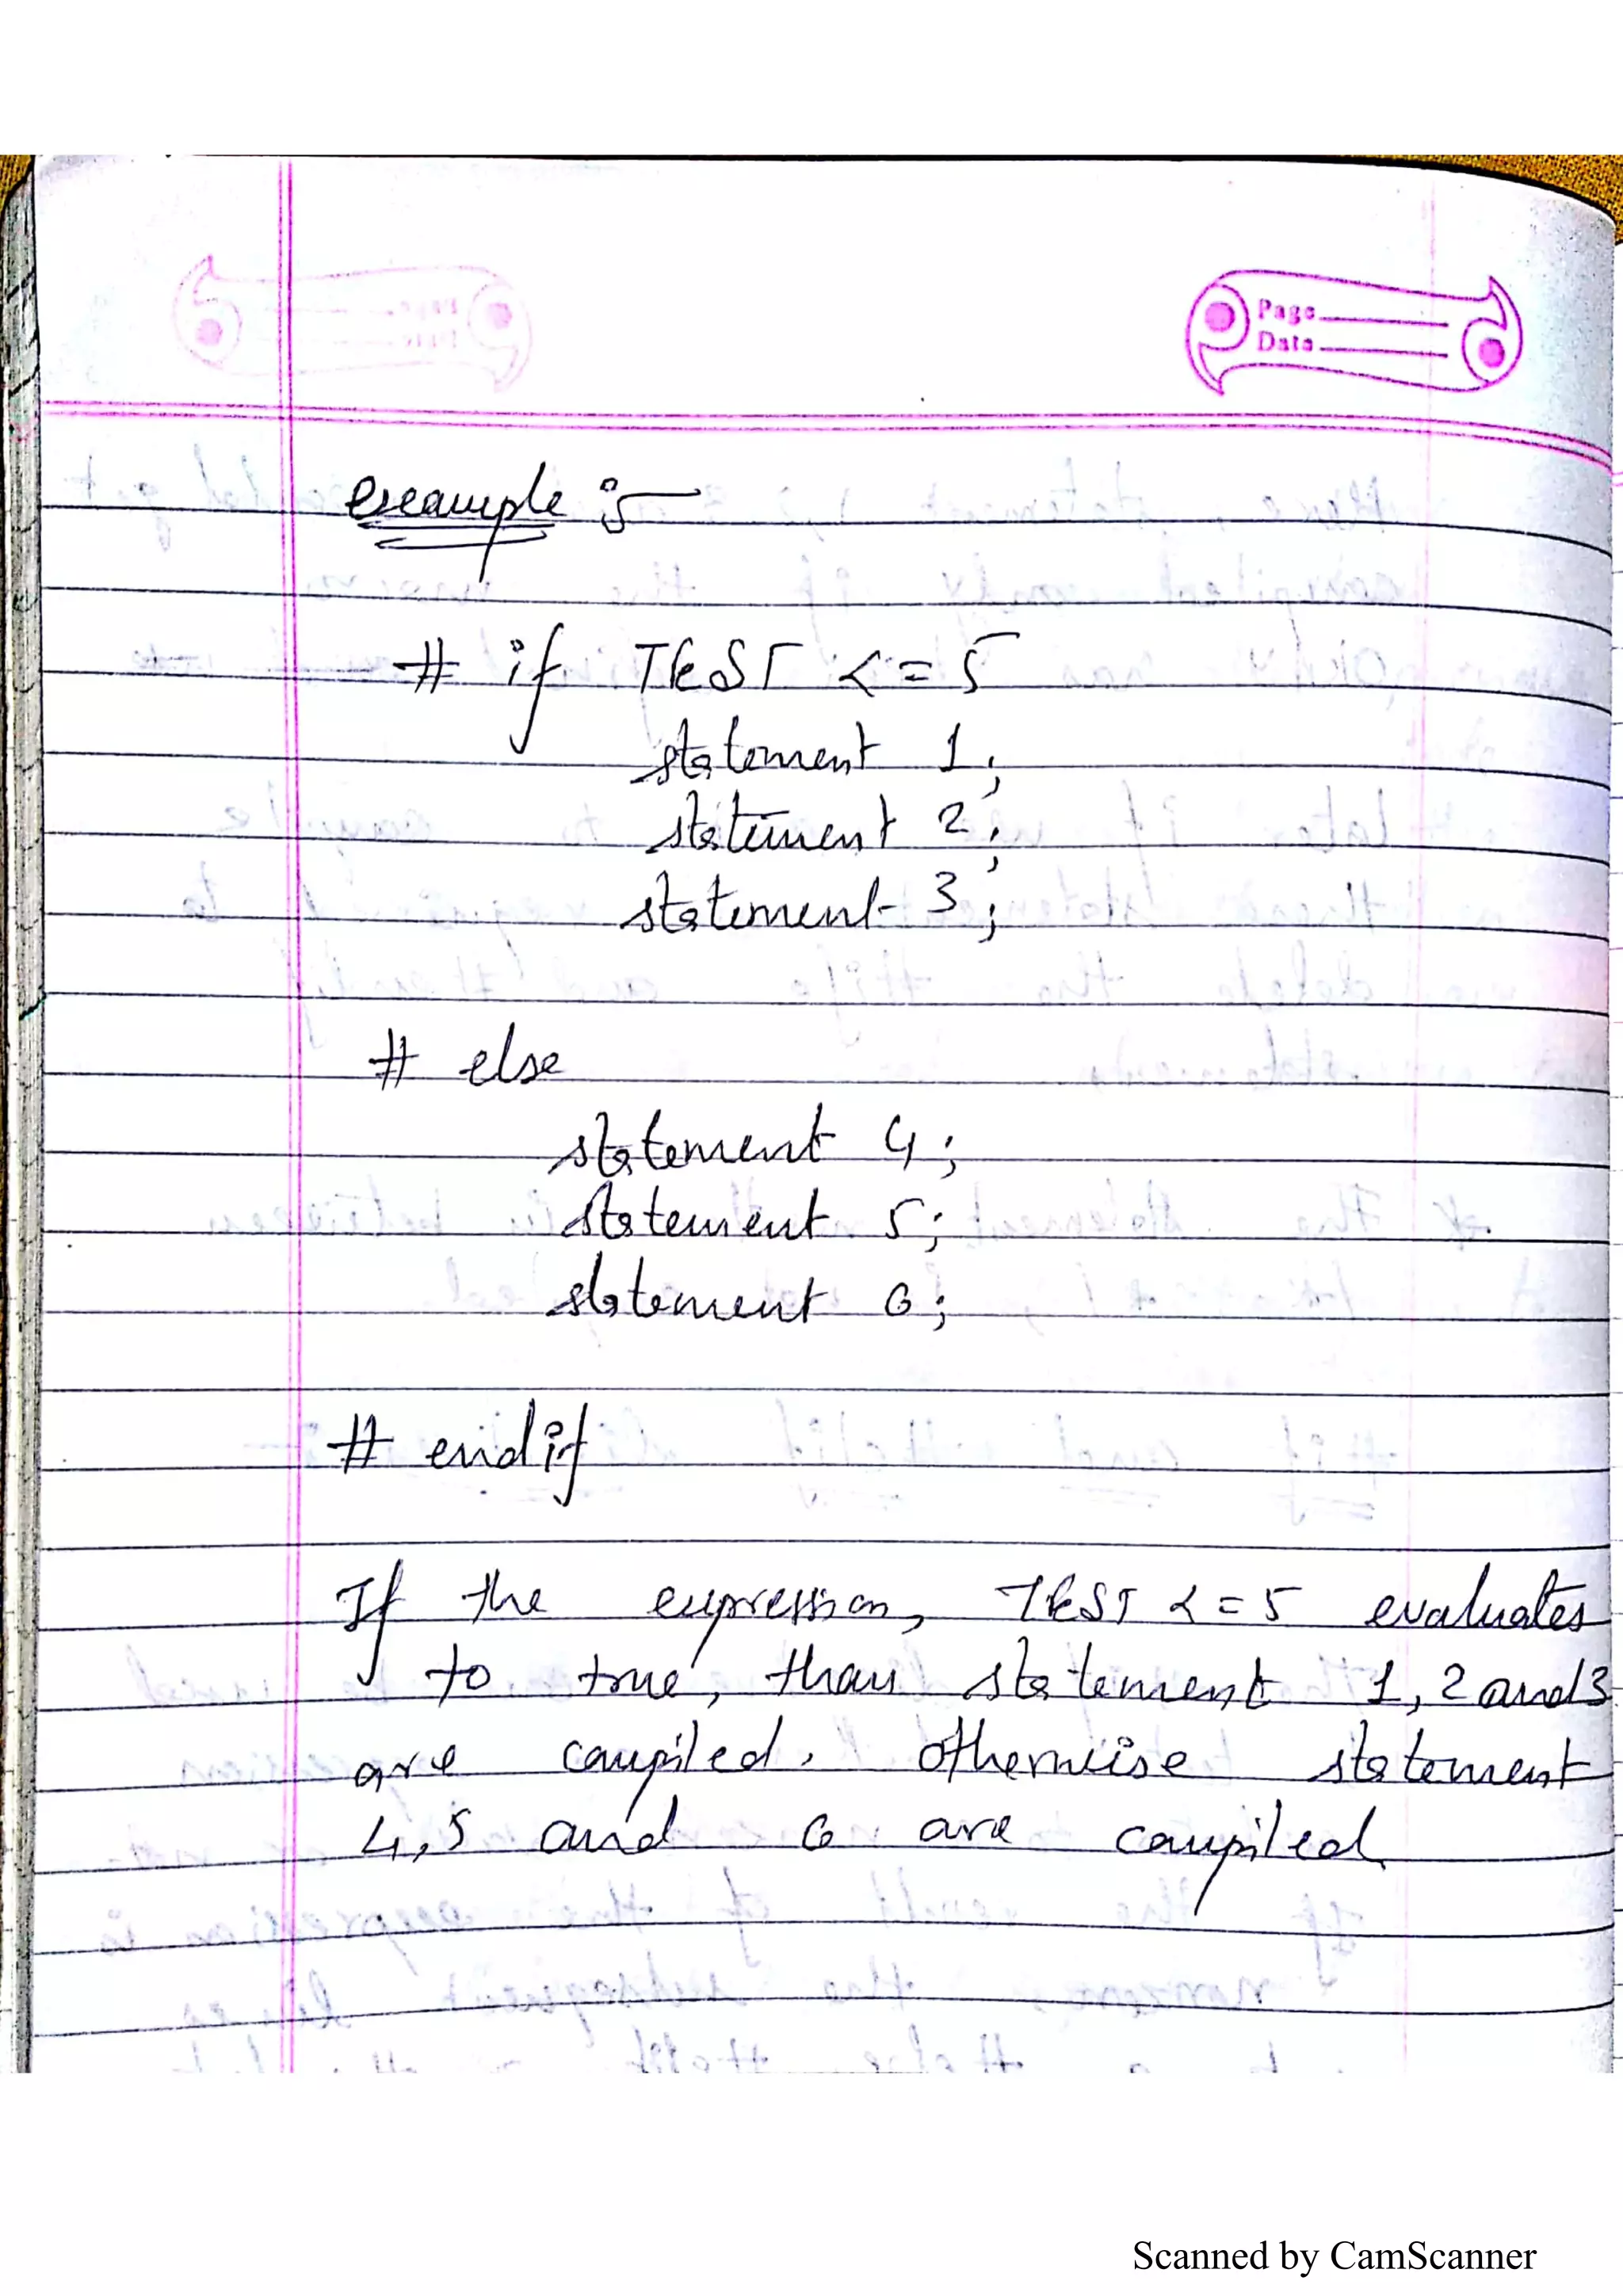 Page
Date
example :-
# if TEST <= 5
statement 1;
statement 2;
statement 3;
# else
statement 4;
statement 5;
statement 6;
# endif
If the expression, TEST <= 5 evaluates
to true, than statement 1, 2 and 3
are compiled. otherwise statement
4, 5 and 6 are compiled.
Scanned by CamScanner